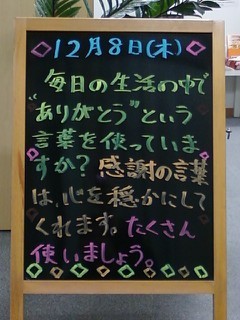 12月8日(木)
毎日の生活の中で
“ありがとう”という
言葉を使っていま
すか?感謝の言葉
は、心を穏かにして
くれます。たくさん
使いましょう。